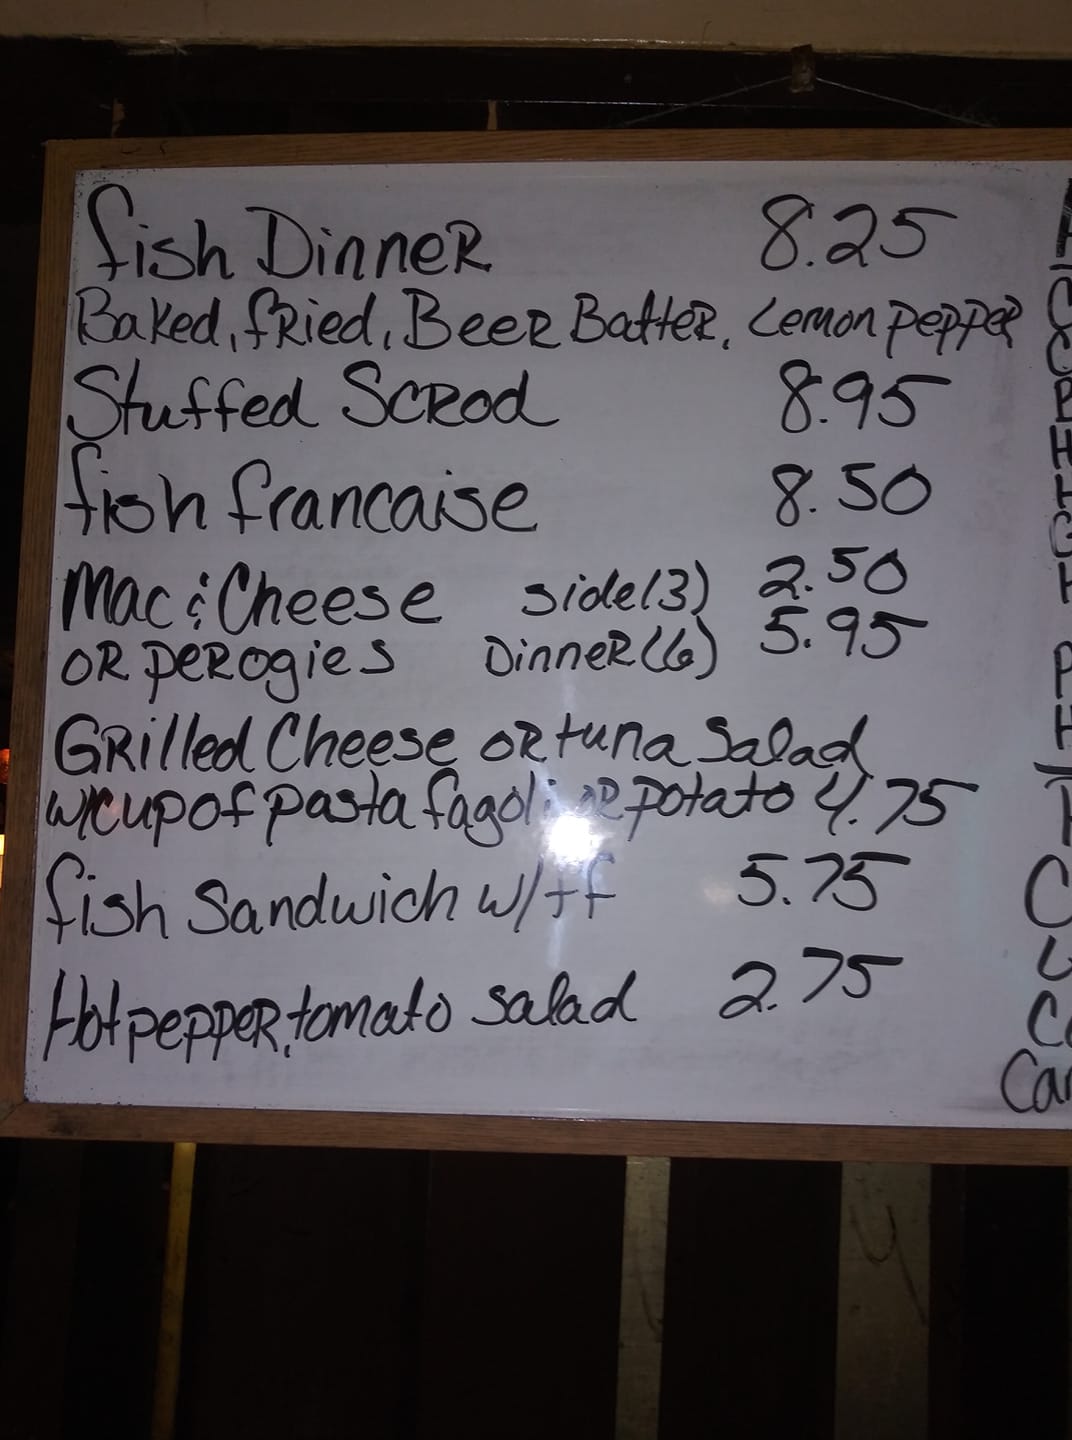 fish Dinner 8.25
Baked, fried, Beer Batter, Lemon pepper
Stuffed Scrod 8.95
fish francaise 8.50
Mac & Cheese side (3) 2.50
or perogies Dinner (6) 5.95
Grilled Cheese or tuna salad
w/cup of pasta fagoli or potato 4.75
fish Sandwich w/ff 5.75
Hot pepper, tomato salad 2.75